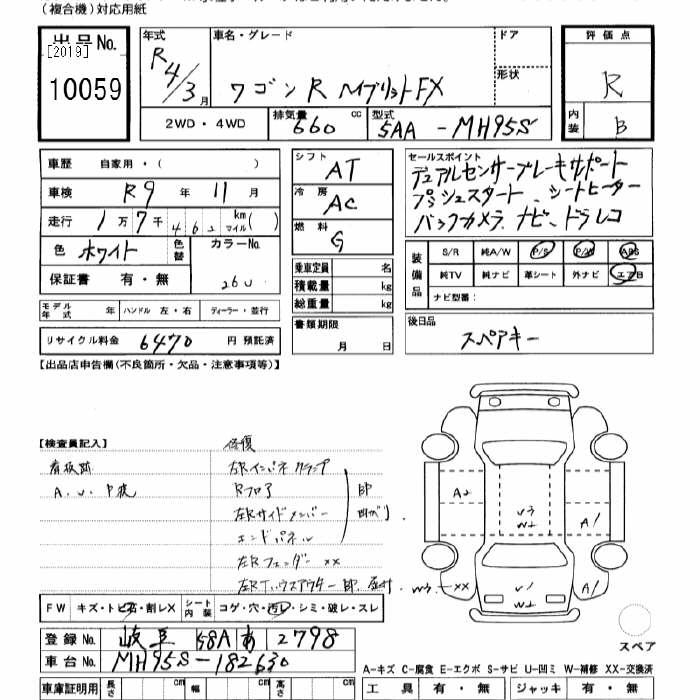 (複合機)対応用紙
出品No.
[2019]
10059
年式 R4/3月
車名・グレード ワゴンR ハイブリットFX
ドア
形状
2WD・4WD
排気量 660 cc
型式 5AA-MH95S
評価点 R
内装 B
車歴 自家用・( )
車検 R9年 11月
走行 1万7千46 km マイル( )
色 ホワイト 色替 カラーNo. 26U
保証書 有・無
シフト AT
冷房 AC
燃料 G
乗車定員 名
積載量 kg
総重量 kg
書類期限 月 日
セールスポイント
デュアルセンサーブレーキサポート
プッシュスタート、シートヒーター
バックカメラ、ナビ、ドラレコ
装備品 S/R 純A/W P/S P/W ABS
純TV 純ナビ 革シート 外ナビ エアB
ナビ型番:
モデル年式 年 ハンドル 左・右 ディーラー・並行
リサイクル料金 6470 円 預託済
後日品 スペアキー
【出品店申告欄(不良箇所・欠品・注意事項等)】
【検査員記入】 修復
看板跡 左Rインパネ クランプ
A.U.P桟 Rフロア
左Rサイドメンバー
エンドパネル
左Rフェンダー xx
左Rタイヤハウスアウター
A2
U3
W2
A1
W3 xx
U1
W2
A1
FW キズ・トビ石・割レX シート内装 コゲ・穴・汚レ・シミ・破レ・スレ
登録No. 岐阜 58A あ 2798
車台No. MH95S-182630
スペア
A-キズ C-腐食 E-エクボ S-サビ U-凹ミ W-補修 XX-交換済
車庫証明用 長さ cm 幅 cm 高さ cm
工具 有・無 ジャッキ 有・無